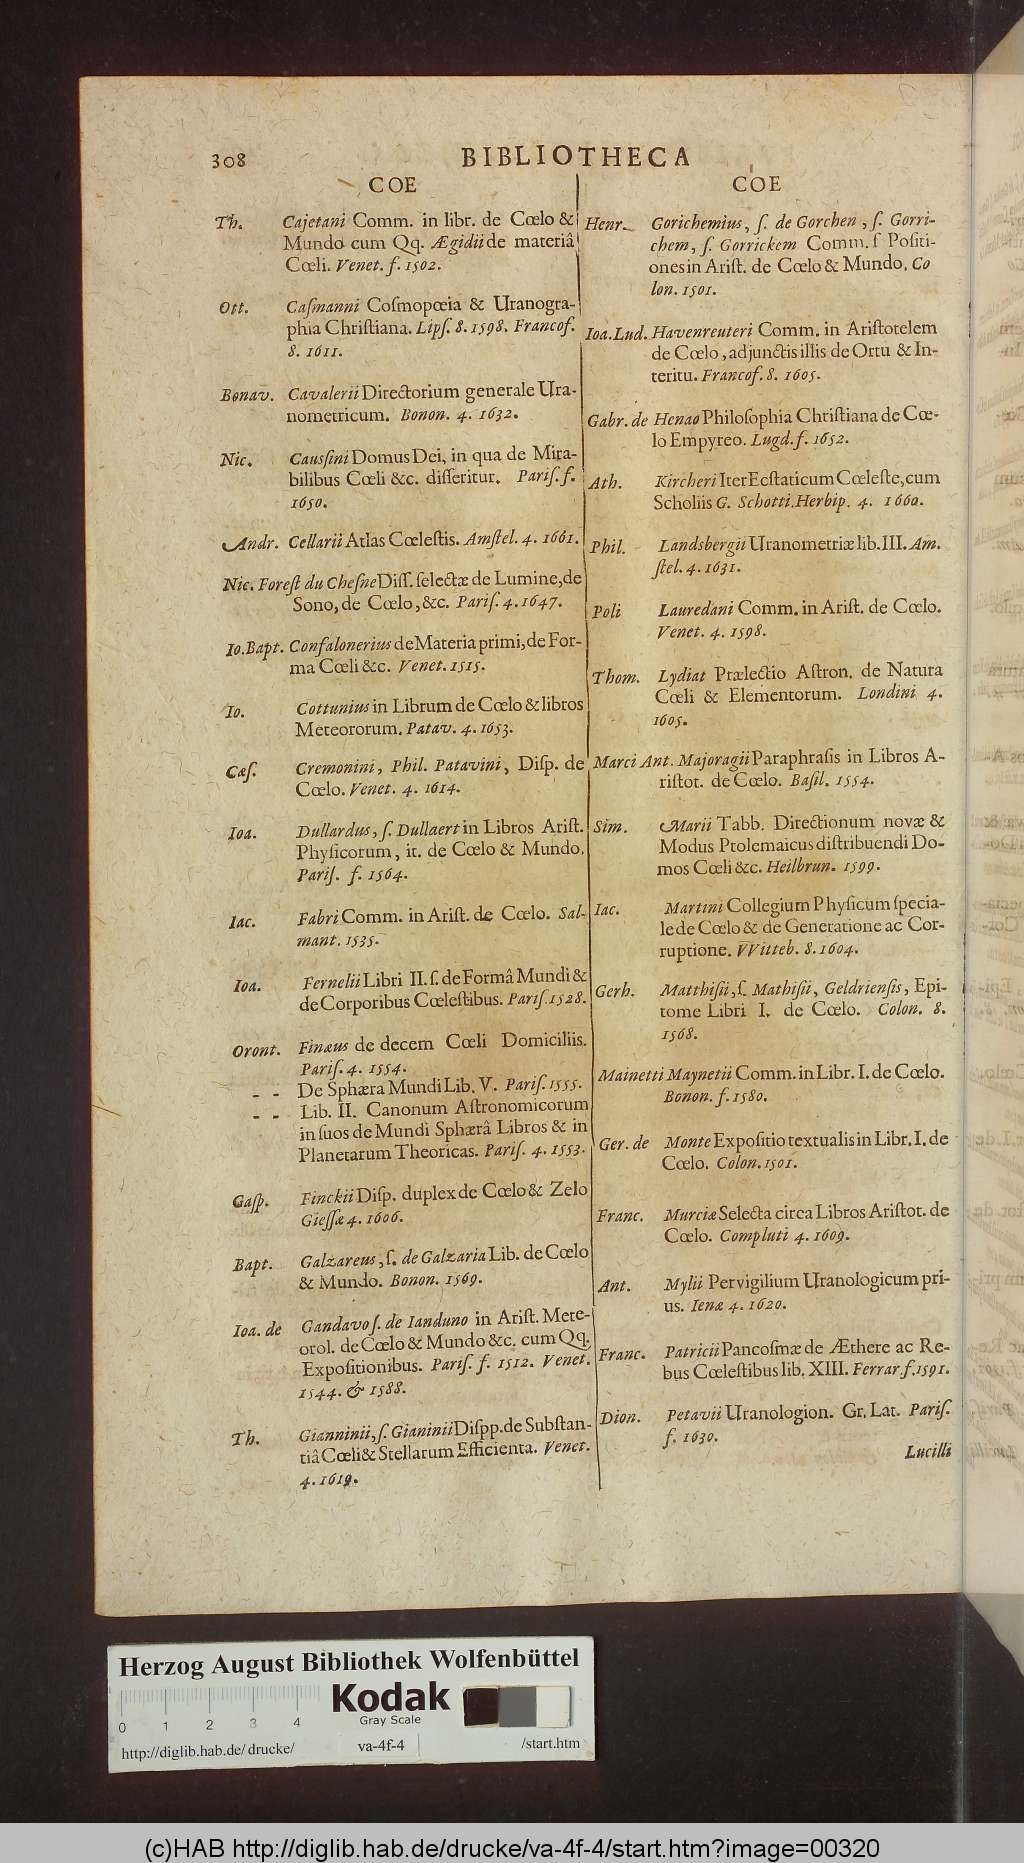 308
BIBLIOTHECA
COE
Th. Cajetani Comm. in libr. de Cœlo &
Mundo cum Qq. Ægidii de materiâ
Cœli. Venet. f. 1502.
Ott. Caſmanni Coſmopœia & Uranogra-
phia Chriſtiana. Lipſ. 8. 1598. Francof.
8. 1611.
Bonav. Cavalerii Directorium generale Ura-
nometricum. Bonon. 4. 1632.
Nic. Cauſsini Domus Dei, in qua de Mira-
bilibus Cœli &c. diſſeritur. Pariſ. f.
1650.
Andr. Cellarii Atlas Cœleſtis. Amſtel. 4. 1661.
Nic. Foreſt du Cheſne Diſſ. ſelectæ de Lumine, de
Sono, de Cœlo, &c. Pariſ. 4. 1647.
Io. Bapt. Confalonerius de Materia primi, de For-
ma Cœli &c. Venet. 1515.
Io. Cottunius in Librum de Cœlo & libros
Meteororum. Patav. 4. 1653.
Cæſ. Cremonini, Phil. Patavini, Diſp. de
Cœlo. Venet. 4. 1614.
Ioa. Dullardus, ſ. Dullaert in Libros Ariſt.
Phyſicorum, it. de Cœlo & Mundo.
Pariſ. f. 1564.
Iac. Fabri Comm. in Ariſt. de Cœlo. Sal-
mant. 1535.
Ioa. Fernelii Libri II. ſ. de Formâ Mundi &
de Corporibus Cœleſtibus. Pariſ. 1528.
Oront. Finæus de decem Cœli Domiciliis.
Pariſ. 4. 1554.
- - De Sphæra Mundi Lib. V. Pariſ. 1555.
- - Lib. II. Canonum Aſtronomicorum
in ſuos de Mundi Sphærâ Libros & in
Planetarum Theoricas. Pariſ. 4. 1553.
Gaſp. Finckii Diſp. duplex de Cœlo & Zelo
Gieſſæ 4. 1606.
Bapt. Galzareus, ſ. de Galzaria Lib. de Cœlo
& Mundo. Bonon. 1569.
Ioa. de Gandavo ſ. de Ianduno in Ariſt. Mete-
orol. de Cœlo & Mundo &c. cum Qq.
Expoſitionibus. Pariſ. f. 1512. Venet.
1544. & 1588.
Th. Gianninii, ſ. Gianinii Diſpp. de Subſtan-
tiâ Cœli & Stellarum Efficienta. Venet.
4. 1619.
COE
Henr. Gorichemius, ſ. de Gorchen, ſ. Gorri-
chem, ſ. Gorrickem Comm. ſ Poſiti-
ones in Ariſt. de Cœlo & Mundo. Co
lon. 1501.
Ioa. Lud. Havenreuteri Comm. in Ariſtotelem
de Cœlo, adjunctis illis de Ortu & In-
teritu. Francof. 8. 1605.
Gabr. de Henao Philoſophia Chriſtiana de Cœ-
lo Empyreo. Lugd. f. 1652.
Ath. Kircheri Iter Ecſtaticum Cœleſte, cum
Scholiis G. Schotti. Herbip. 4. 1660.
Phil. Landsbergii Uranometriæ lib. III. Am-
ſtel. 4. 1631.
Poli Lauredani Comm. in Ariſt. de Cœlo.
Venet. 4. 1598.
Thom. Lydiat Prælectio Aſtron. de Natura
Cœli & Elementorum. Londini 4.
1605.
Marci Ant. Majoragii Paraphraſis in Libros A-
riſtot. de Cœlo. Baſil. 1554.
Sim. Marii Tabb. Directionum novæ &
Modus Ptolemaicus diſtribuendi Do-
mos Cœli &c. Heilbrun. 1599.
Iac. Martini Collegium Phyſicum ſpecia-
le de Cœlo & de Generatione ac Cor-
ruptione. VVitteb. 8. 1604.
Gerh. Matthiſii, ſ. Mathiſii, Geldrienſis, Epi-
tome Libri I. de Cœlo. Colon. 8.
1568.
Mainetti Maynetii Comm. in Libr. I. de Cœlo.
Bonon. f. 1580.
Ger. de Monte Expoſitio textualis in Libr. I. de
Cœlo. Colon. 1501.
Franc. Murciæ Selecta circa Libros Ariſtot. de
Cœlo. Compluti 4. 1609.
Ant. Mylii Pervigilium Uranologicum pri-
us. Ienæ 4. 1620.
Franc. Patricii Pancoſmæ de Æthere ac Re-
bus Cœleſtibus lib. XIII. Ferrar. f. 1591.
Dion. Petavii Uranologion. Gr. Lat. Pariſ.
f. 1630.
Lucilli
Herzog August Bibliothek Wolfenbüttel
0 1 2 3 4
Kodak
Gray Scale
http://diglib.hab.de/drucke/ va-4f-4 /start.htm
(c)HAB http://diglib.hab.de/drucke/va-4f-4/start.htm?image=00320